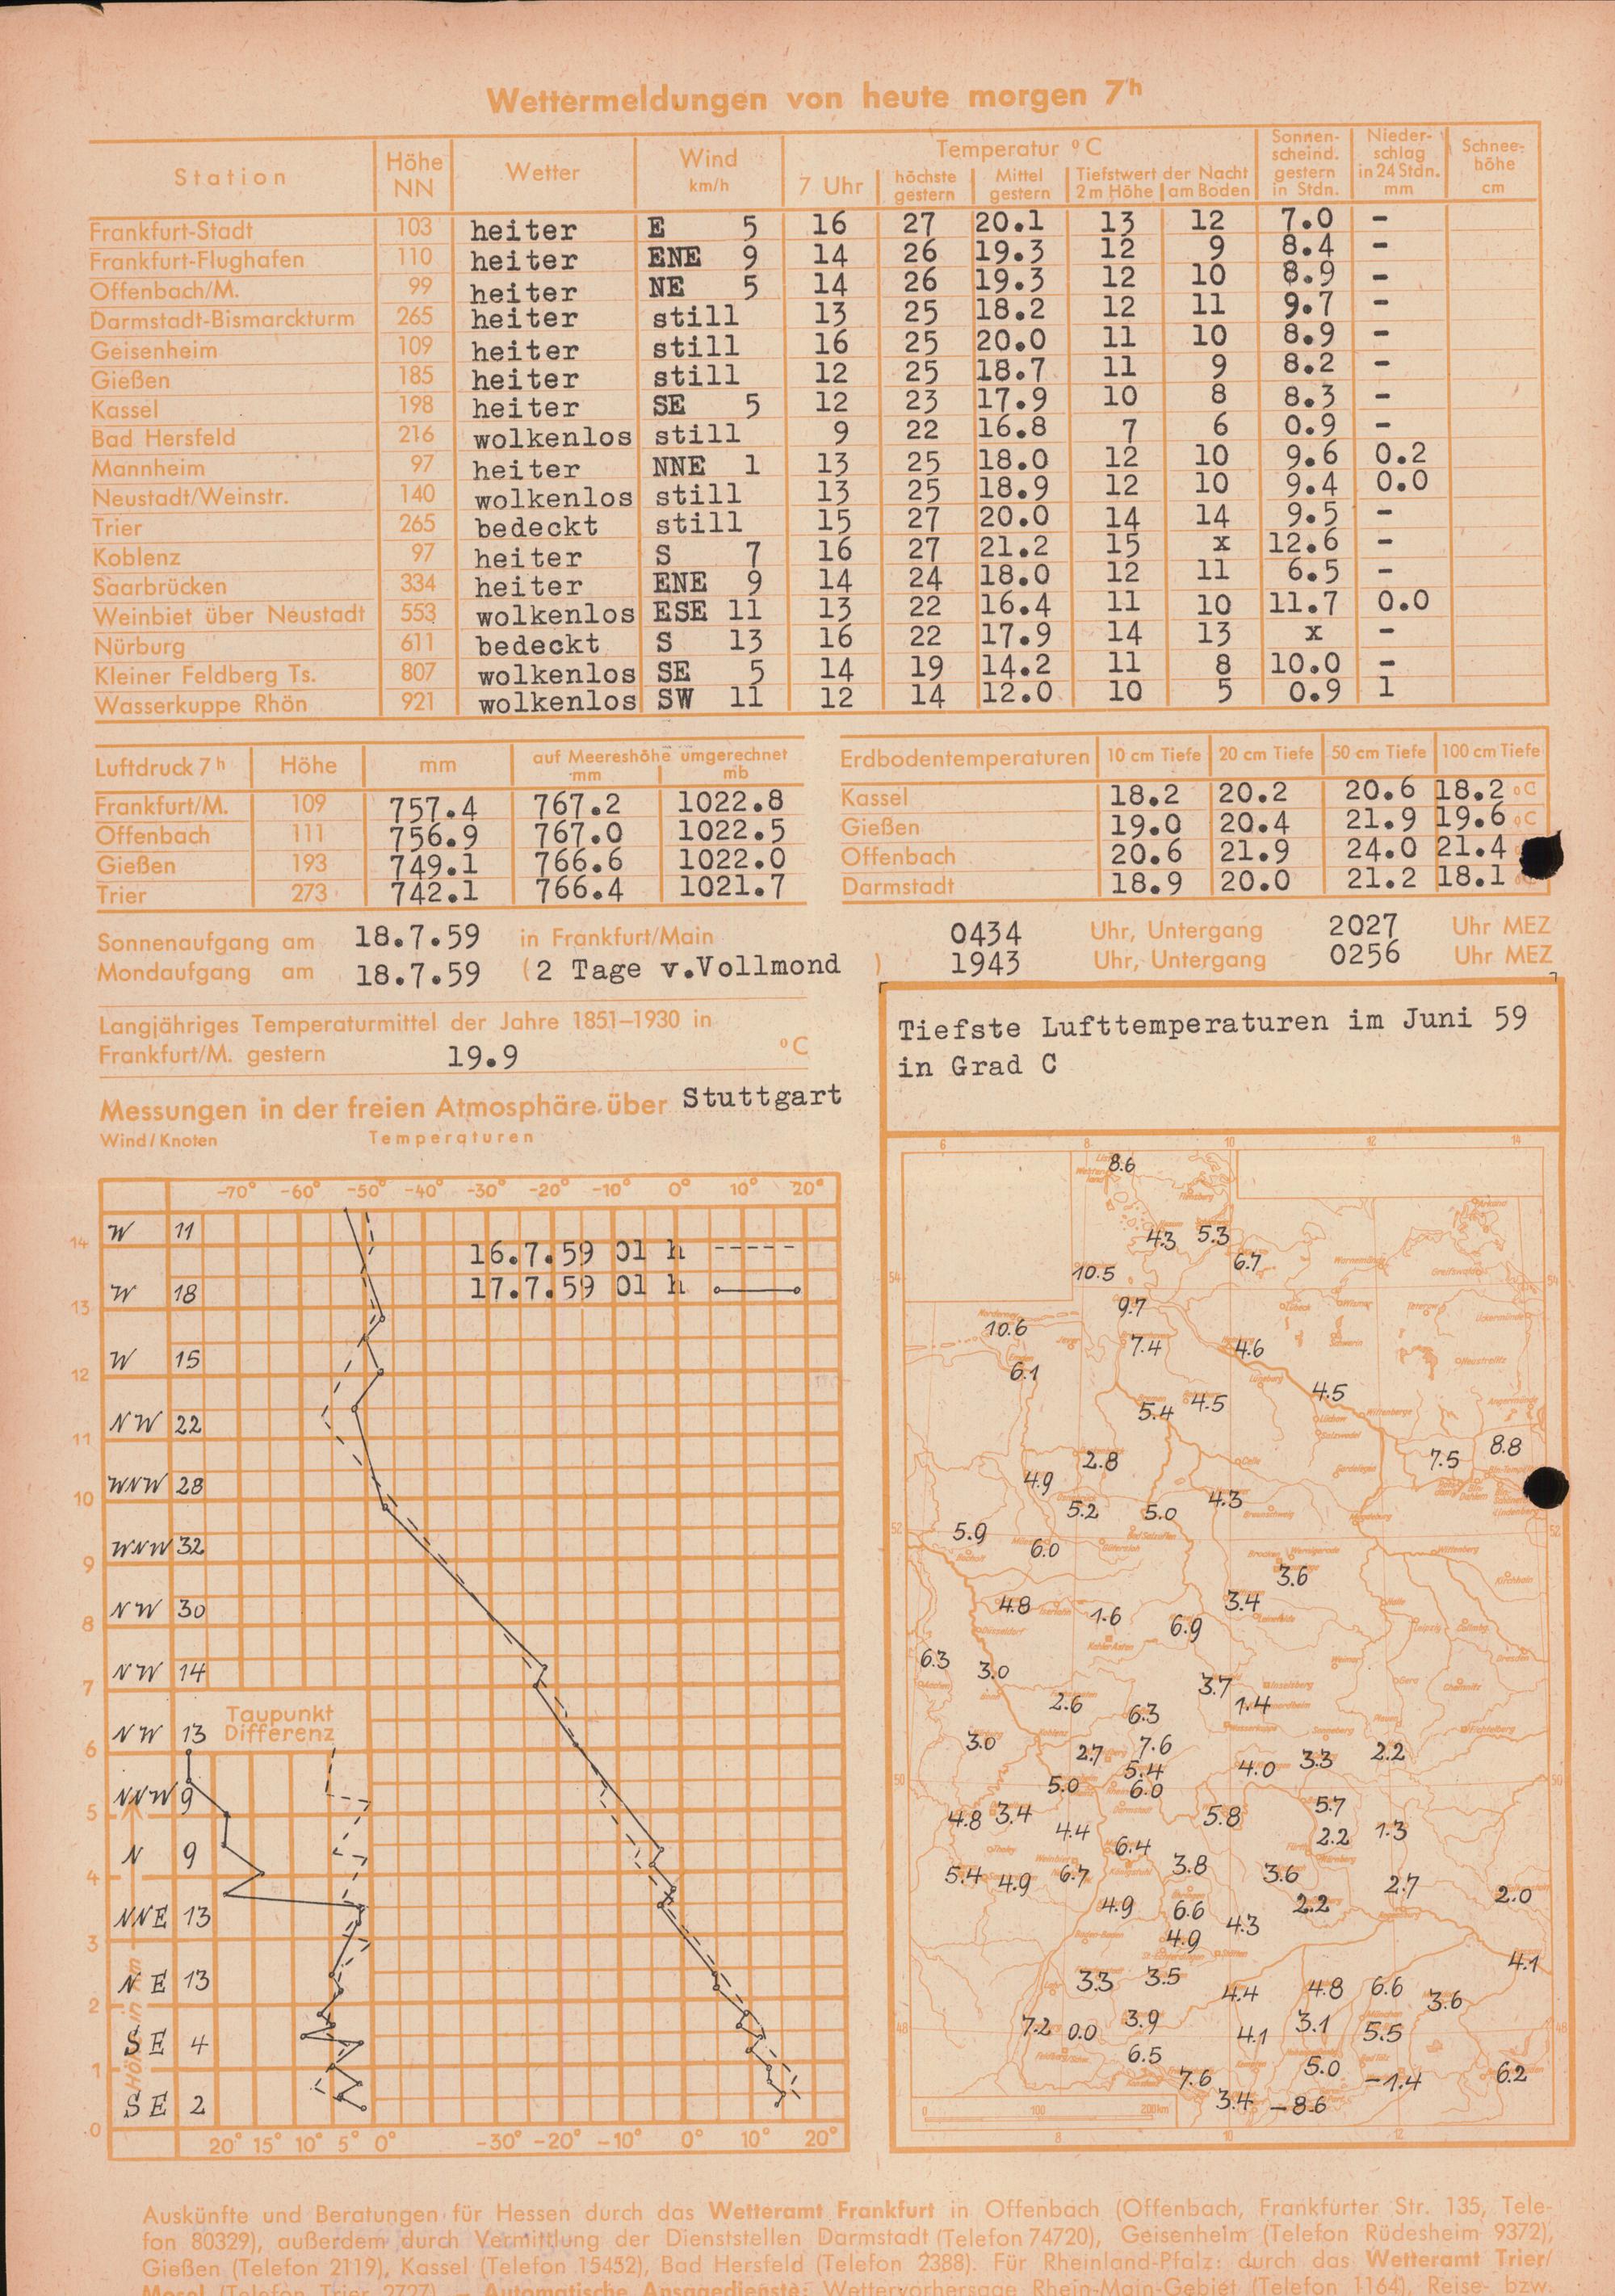 Wettermeldungen von heute morgen 7h
Station Höhe NN Wetter Wind km/h Temperatur °C 7 Uhr höchste gestern Mittel gestern Tiefstwert der Nacht 2 m Höhe am Boden Sonnen-scheind. gestern in Stdn. Nieder-schlag in 24 Stdn. mm Schnee-höhe cm
Frankfurt-Stadt 103 heiter E 5 16 27 20.1 13 12 7.0 -
Frankfurt-Flughafen 110 heiter ENE 9 14 26 19.3 12 9 8.4 -
Offenbach/M. 99 heiter NE 5 14 26 19.3 12 10 8.9 -
Darmstadt-Bismarckturm 265 heiter still 13 25 18.2 12 11 9.7 -
Geisenheim 109 heiter still 16 25 20.0 11 10 8.9 -
Gießen 185 heiter still 12 25 18.7 11 9 8.2 -
Kassel 198 heiter SE 5 12 23 17.9 10 8 8.3 -
Bad Hersfeld 216 wolkenlos still 9 22 16.8 7 6 0.9 -
Mannheim 97 heiter NNE 1 13 25 18.0 12 10 9.6 0.2
Neustadt/Weinstr. 140 wolkenlos still 13 25 18.9 12 10 9.4 0.0
Trier 265 bedeckt still 15 27 20.0 14 14 9.5 -
Koblenz 97 heiter S 7 16 27 21.2 15 x 12.6 -
Saarbrücken 334 heiter ENE 9 14 24 18.0 12 11 6.5 -
Weinbiet über Neustadt 553 wolkenlos ESE 11 13 22 16.4 11 10 11.7 0.0
Nürburg 611 bedeckt S 13 16 22 17.9 14 13 x -
Kleiner Feldberg Ts. 807 wolkenlos SE 5 14 19 14.2 11 8 10.0 -
Wasserkuppe Rhön 921 wolkenlos SW 11 12 14 12.0 10 5 0.9 1
Luftdruck 7h Höhe mm auf Meereshöhe umgerechnet mm mb
Frankfurt/M. 109 757.4 767.2 1022.8
Offenbach 111 756.9 767.0 1022.5
Gießen 193 749.1 766.6 1022.0
Trier 273 742.1 766.4 1021.7
Erdbodentemperaturen 10 cm Tiefe 20 cm Tiefe 50 cm Tiefe 100 cm Tiefe
Kassel 18.2 20.2 20.6 18.2 °C
Gießen 19.0 20.4 21.9 19.6 °C
Offenbach 20.6 21.9 24.0 21.4
Darmstadt 18.9 20.0 21.2 18.1 °C
Sonnenaufgang am 18.7.59 in Frankfurt/Main 0434 Uhr, Untergang 2027 Uhr MEZ
Mondaufgang am 18.7.59 (2 Tage v.Vollmond ) 1943 Uhr, Untergang 0256 Uhr MEZ
Langjähriges Temperaturmittel der Jahre 1851–1930 in
Frankfurt/M. gestern 19.9 °C
Messungen in der freien Atmosphäre über Stuttgart
Wind/Knoten Temperaturen
-70° -60° -50° -40° -30° -20° -10° 0° 10° 20°
W 11
14
16.7.59 01 h -----
17.7.59 01 h
W 18
13
W 15
12
NW 22
11
WNW 28
10
WNW 32
9
NW 30
8
NW 14
7
Taupunkt
Differenz
NW 13
6
NNW 9
5
N 9
4
NNE 13
3
NE 13
2
SE 4
1
SE 2
0
Höhe in km
20° 15° 10° 5° 0° -30° -20° -10° 0° 10° 20°
Tiefste Lufttemperaturen im Juni 59
in Grad C
6 8 10 12 14
8.6
4.3 5.3
6.7
10.5
54 54
9.7
10.6
7.4 4.6
6.1
4.5
5.4 4.5
8.8
2.8 7.5
4.9
5.2 5.0 4.3
5.9
52 52
6.0
3.6
4.8 1.6 3.4
6.9
6.3 3.0
3.7
2.6 6.3 1.4
3.0 2.7 7.6
5.4 4.0 3.3 2.2
5.0 6.0
50 50
4.8 3.4 5.8 5.7
4.4 2.2 1.3
6.4
5.4 4.9 6.7 3.8 3.6 2.7
2.0
4.9 6.6 2.2
4.9 4.3
4.1
3.3 3.5
4.4 4.8 6.6 3.6
7.2 0.0 3.9 4.1 3.1 5.5
48 48
6.5 5.0
7.6 -1.4 6.2
3.4 -8.6
0 100 200km
8 10 12
Auskünfte und Beratungen für Hessen durch das Wetteramt Frankfurt in Offenbach (Offenbach, Frankfurter Str. 135, Tele-
fon 80329), außerdem durch Vermittlung der Dienststellen Darmstadt (Telefon 74720), Geisenheim (Telefon Rüdesheim 9372),
Gießen (Telefon 2119), Kassel (Telefon 15452), Bad Hersfeld (Telefon 2388). Für Rheinland-Pfalz: durch das Wetteramt Trier/
Mosel (Telefon Trier 2727). — Automatische Ansagedienste: Wettervorhersage Rhein-Main-Gebiet (Telefon 1164), Reise- bzw.